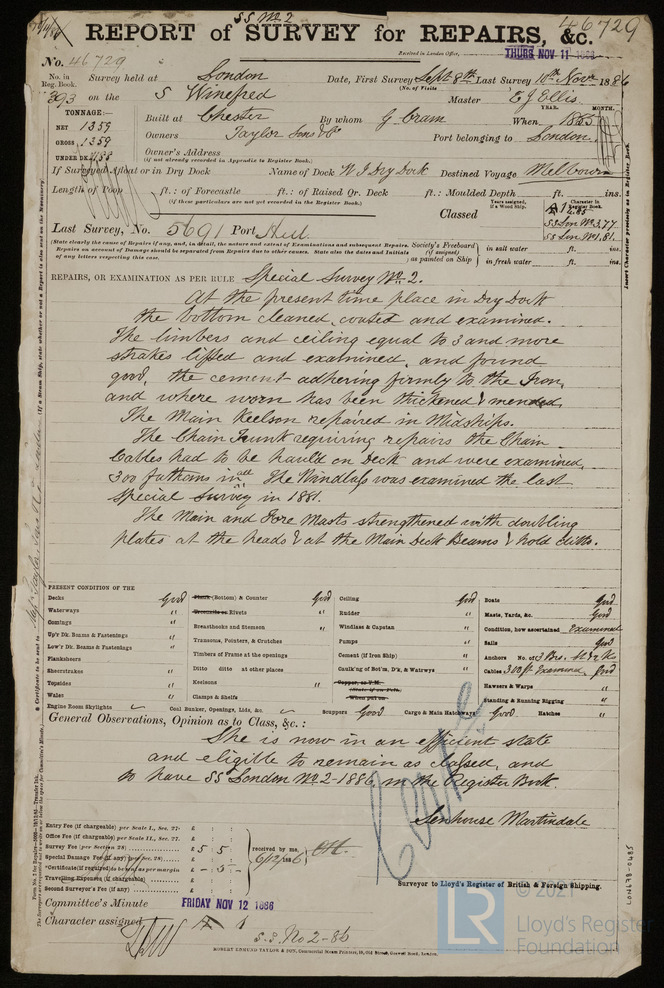 SS No 2
46729
REPORT of SURVEY for REPAIRS, &c.
Received in London Office,
THURS NOV 11 1886
No. 46729
No. in Reg. Book.
Survey held at London
Date, First Survey Sept 8th Last Survey 10th Novr 1886
(No. of Visits
893 on the S Winefred
Master E J Ellis
TONNAGE:—
NET 1359
GROSS 1359
UNDER DK
Built at Chester By whom G Cram When 1865
YEAR. MONTH.
Owners Taylor Sons & Co Port belonging to London
Owner's Address
(if not already recorded in Appendix to Register Book.)
If Surveyed Afloat or in Dry Dock Name of Dock W I Dry Dock Destined Voyage Melbourn
Length of Poop ft.: of Forecastle ft.: of Raised Qr. Deck ft.: Moulded Depth ft. ins.
(if these particulars are not yet recorded in the Register Book.)
Classed
Years assigned, if a Wood Ship.
Character in Register Book.
Last Survey, No. 5691 Port Hull
SS Lon No 3.77
SS Lon No 1.81
(State clearly the cause of Repairs, if any, and, in detail, the nature and extent of Examinations and subsequent Repairs. Repairs on account of Damage should be separated from Repairs due to other causes. State also the dates and Initials of any letters respecting this case.
Society's Freeboard (if assigned) as painted on Ship
in salt water ft. ins.
in fresh water ft. ins.
Insert Character precisely as in Register Book.
REPAIRS, OR EXAMINATION AS PER RULE Special Survey No. 2.
At the present time place in Dry Dock
the bottom cleaned, coated and examined.
The limbers and ceiling equal to 3 and more
strakes lifted and examined, and found
good, the cement adhering firmly to the Iron,
and where worn has been thickened & mended.
The Main Keelson repaired in Midships.
The Chain Trunk requiring repairs the Chain
Cables had to be hauld on Deck and were examined,
300 fathoms in all The Windlass was examined the last
Special Survey in 1881.
The Main and Fore Masts strengthened with doubling
plates at the heads & at the Main Deck Beams & hold ditto.
PRESENT CONDITION OF THE
Decks Good
Waterways "
Comings "
Up'r Dk. Beams & Fastenings "
Low'r Dk. Beams & Fastenings "
Planksheers
Sheerstrakes "
Topsides "
Wales "
Engine Room Skylights "
Plank (Bottom) & Counter Good
Treenails or Rivets "
Breasthooks and Stemson "
Transoms, Pointers, & Crutches "
Timbers of Frame at the openings
Ditto ditto at other places
Keelsons "
Clamps & Shelfs "
Coal Bunker, Openings, Lids, &c. "
Ceiling Good
Rudder "
Windlass & Capstan "
Pumps "
Cement (if Iron Ship) "
Caulk'ng of Bot'm, D'k, & Watrwys "
Copper, or Y.M.
When put on
Scuppers Good Cargo & Main Hatchways Good Hatches "
Boats Good
Masts, Yards, &c. Good
Condition, how ascertained Examined
Sails Good
Anchors No. of 3 Brs.
Cables 300 ft Examined Good
Hawsers & Warps "
Standing & Running Rigging "
General Observations, Opinion as to Class, &c. :
She is now in an efficient state
and eligible to remain as Classed, and
to have SS London No. 2-1886, in the Register Book.
Senhouse Martindale
Surveyor to Lloyd's Register of British & Foreign Shipping.
Entry Fee (if chargeable) per Scale I., Sec. 27- £ : :
Office Fee (if chargeable) per Scale II., Sec. 27. £ : :
Survey Fee (per Section 28) £ 5 : 5 :
Special Damage Fee (if any) (per Sec. 28) £ : :
*Certificate (if required) to be sent as per margin £ - : 5 :
Travelling Expenses (if chargeable) £ : :
Second Surveyor's Fee (if any) £ : :
received by me,
Committee's Minute FRIDAY NOV 12 1886
Character assigned A 1
S.S. No 2-86
ROBERT EDMUND TAYLOR & SON, Commercial Steam Printers, 19, Old Street, Goswell Road, London.
LON478-0658
© 2021
LR
Lloyd's Register
Foundation